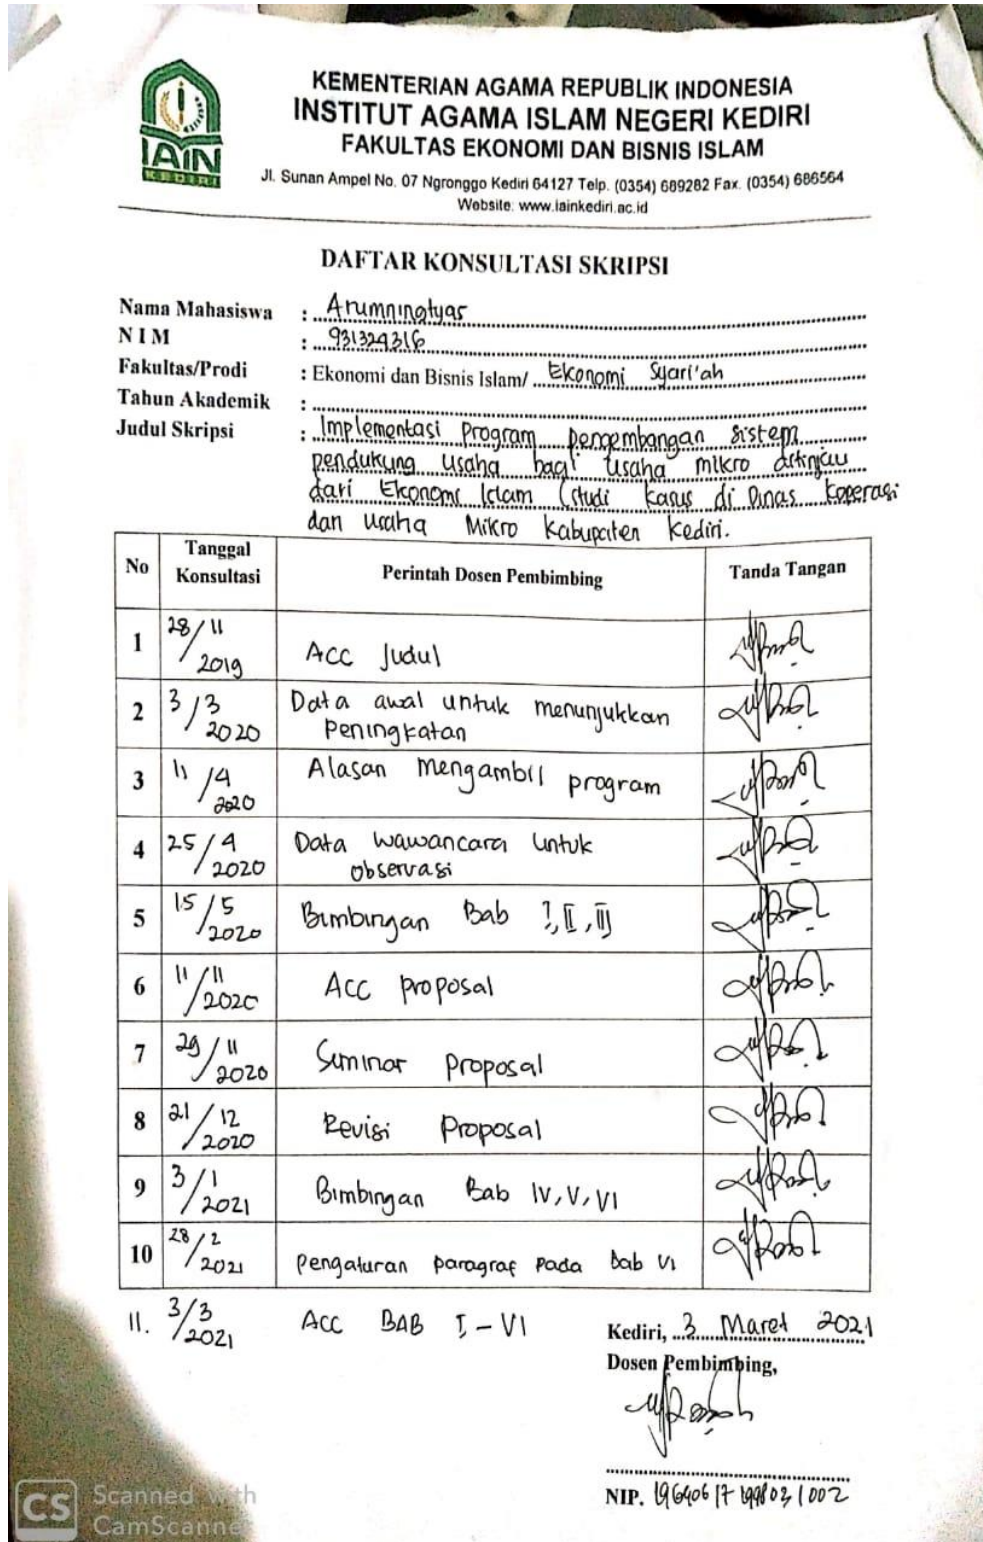 KEMENTERIAN AGAMA REPUBLIK INDONESIA
INSTITUT AGAMA ISLAM NEGERI KEDIRI
FAKULTAS EKONOMI DAN BISNIS ISLAM
IAIN
KEDIRI
Jl. Sunan Ampel No. 07 Ngronggo Kediri 64127 Telp. (0354) 689282 Fax. (0354) 686564
Website: www.iainkediri.ac.id
DAFTAR KONSULTASI SKRIPSI
Nama Mahasiswa : Arumningtyas
N I M : 931324316
Fakultas/Prodi : Ekonomi dan Bisnis Islam/ Ekonomi Syari'ah
Tahun Akademik :
Judul Skripsi : Implementasi program pengembangan sistem
pendukung usaha bagi usaha mikro ditinjau
dari Ekonomi Islam (studi kasus di Dinas Koperasi
dan usaha Mikro Kabupaten Kediri.
No Tanggal Konsultasi Perintah Dosen Pembimbing Tanda Tangan
1 28/11 2019 ACC Judul
2 3/3 2020 Data awal untuk menunjukkan
Peningkatan
3 11/4 2020 Alasan mengambil program
4 25/4 2020 Data wawancara untuk
observasi
5 15/5 2020 Bimbingan Bab I, II, III
6 11/11 2020 Acc proposal
7 29/11 2020 Seminar proposal
8 21/12 2020 Revisi Proposal
9 3/1 2021 Bimbingan Bab IV, V, VI
10 28/2 2021 pengaturan paragraf pada bab VI
11. 3/3 2021 ACC BAB I - VI
Kediri, 3 Maret 2021
Dosen Pembimbing,
NIP. 196406171998031002
CS Scanned with
CamScanne